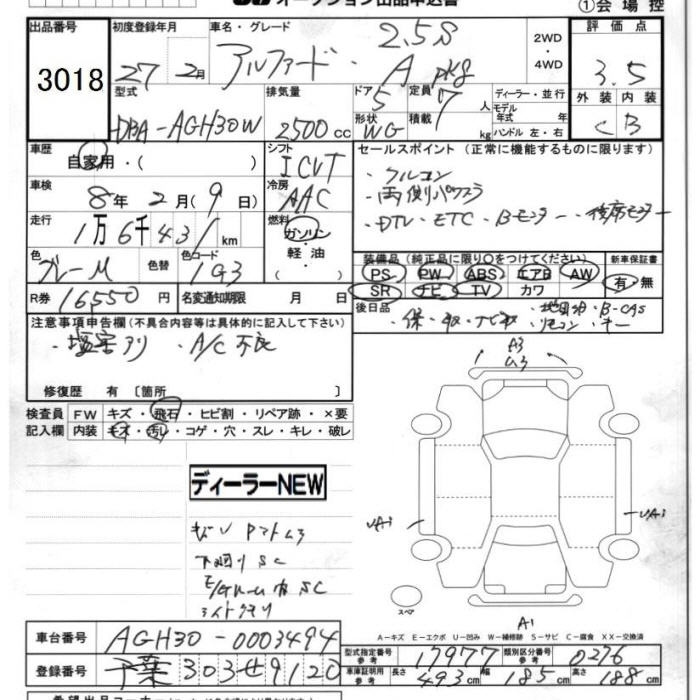 オークション出品申込書
①会場控
出品番号 3018
初度登録年月 27 2月
車名・グレード アルファード・ 2.5S A pkg
2WD ・ 4WD
評価点 3.5
型式 DBA-AGH30W
排気量 2500cc
ドア 5 形状 WG
定員 7 人 積載 kg
ディーラー・並行
モデル年式 年式
ハンドル 左・右
外装 内装
C B
車歴 自家用・( )
シフト ICVT
車検 8年 2月( 9日)
冷房 AAC
走行 1万6千431km
燃料 ガソリン・軽油( )
色 ブルーM 色替 色コード 1G3
R券 16550円 名変通知期限 月 日
セールスポイント (正常に機能するものに限ります)
・クルコン
・両側パワスラ
・DTV・ETC・Bモニター・後席モニター
装備品 (純正品に限り○をつけてください) 新車保証書
PS PW ABS エアB AW 有・無
SR ナビ TV カワ
後日品 ・保・取・ナビ取・地図SD・B-CAS
・リモコン・キー
注意事項申告欄(不具合内容等は具体的に記入して下さい)
・塩害アリ ・A/C不良
修復歴 有 〔箇所 〕
検査員 FW キズ・飛石・ヒビ割・リペア跡・×要
記入欄 内装 キズ・汚れ・コゲ・穴・スレ・キレ・破レ
ディーラーNEW
下廻りSC
E/Gルーム内SC
A3
ム3
UA1
UA1
スペア
A1
A-キズ E-エクボ U-凹み W-補修跡 S-サビ C-腐食 XX-交換済
車台番号 AGH30-0003494
登録番号 千葉303せ9120
型式指定番号 参考 17977 類別区分番号 参考 0276
車庫証明用 参考 長さ 493cm 幅 185cm 高さ 188cm